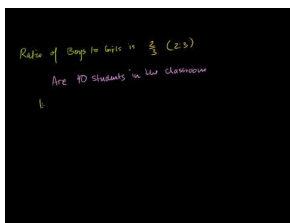 Ratio of Boys to Girls is 2/3 (2:3)
Are 40 Students in the classroom